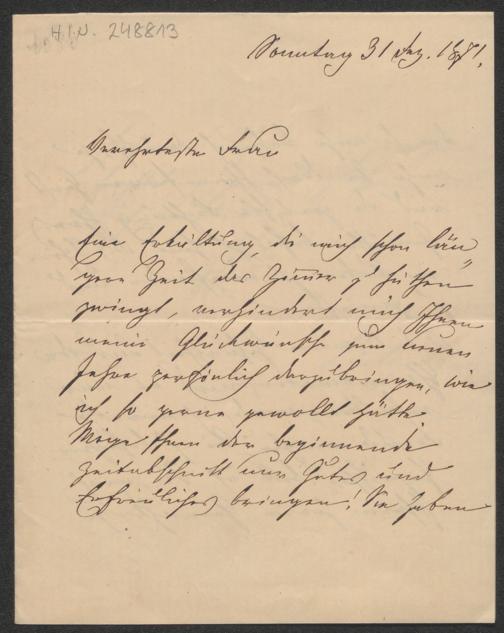 H.I.N. 248813
Sonntag 31 Dez. 1871.
Verehrteste Frau
Eine Erkältung, die mich schon län„
gere Zeit das Zimmer z' hüthen
zwingt, verhindert mich Ihnen
meine Glückwünsche zum neuen
Jahre persönlich darzubringen, wie
ich so gerne gewollt hätte.
Möge Ihnen der beginnende
Zeitabschnitt nur Gutes und
Erfreuliches bringen! Sie haben